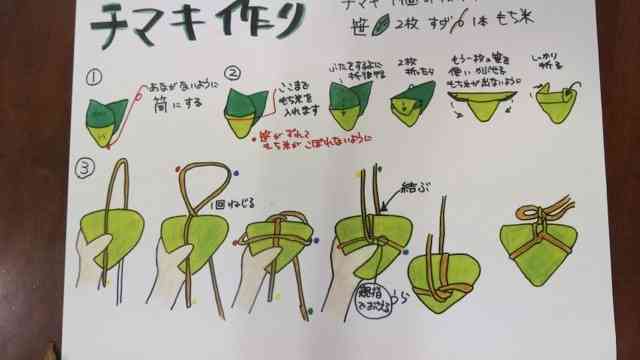 チマキ作り
チマキ
笹 2枚 すげ 1本 もち米
①
あながないように
筒にする
②
ここまで
もち米を
入れます
・笹がずれて
もち米がこぼれないように
ふたをするように
2枚
折ったら
もう一枚の笹を
使い
もち米が出ないように
しっかり
折る
③
1回ねじる
結ぶ
親指
でおさえる
うら